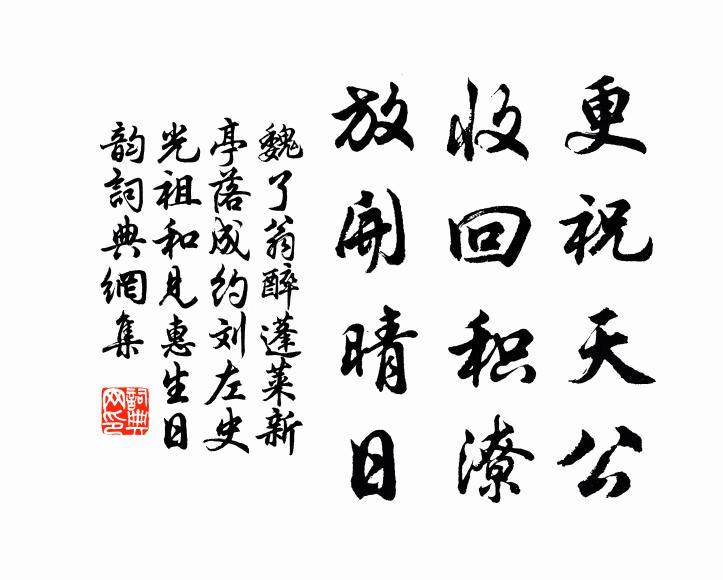 更祝天公
收回积潦
放開晴日
魏了翁醉蓬莱新
亭落成约刘左史
光祖和見惠生日
韵詞典網集
詞典
网印